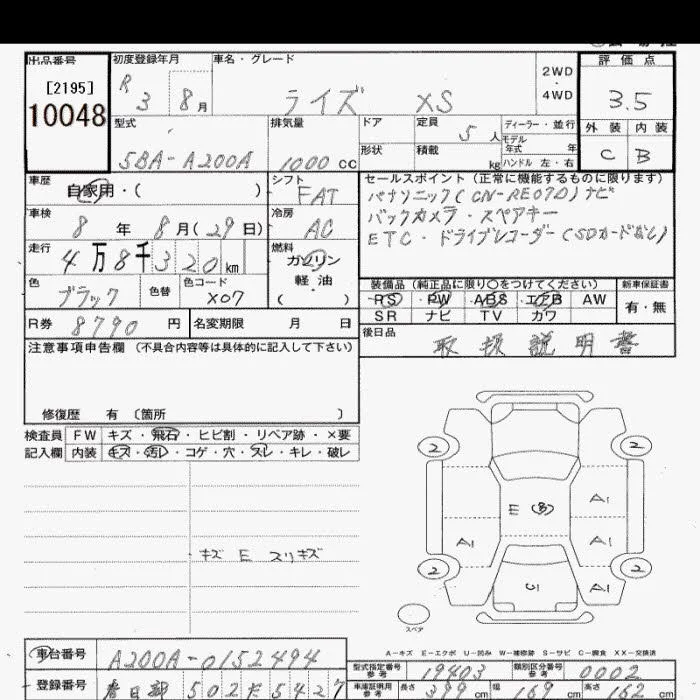 出品番号
[2195]
10048
初度登録年月
R 3 8月
車名・グレード
ライズ XS
2WD
4WD
評価点
3.5
外装 内装
C B
型式
5BA-A200A
排気量
1000cc
ドア
定員 5人
ディーラー・並行
モデル年式 年
形状
積載 kg
ハンドル 左・右
車歴
自家用・( )
シフト
FAT
セールスポイント(正常に機能するものに限ります)
パナソニック(CN-RE07D)ナビ
バックカメラ・スペアキー
ETC・ドライブレコーダー(SDカードなし)
車検
8年 8月(29日)
冷房
AC
走行
4万8千320km
燃料
ガソリン
軽・油
( )
色
ブラック
色替
色コード
X07
装備品(純正品に限り○をつけてください)
新車保証書
PS PW ABS エアB AW
有・無
SR ナビ TV カワ
R券 8790円
名変期限 月 日
後日品
取扱説明書
注意事項申告欄(不具合内容等は具体的に記入して下さい)
修復歴 有〔箇所 〕
検査員
記入欄
FW キズ・飛石・ヒビ割・リペア跡・×要
内装 キズ・汚レ・コゲ・穴・スレ・キレ・破レ
キズ E スリキズ
2 2
E (B) A1
A1 A1
2 2
C1 A1
スペア
A-キズ E-エクボ U-凹み W-補修跡 S-サビ C-腐食 XX-交換済
車台番号 A200A-0152494
型式指定番号 参考 19403
類別区分番号 参考 0002
登録番号 春日部 502 だ 5427
車庫証明用 参考 長さ 399cm 幅 169cm 高さ 162cm